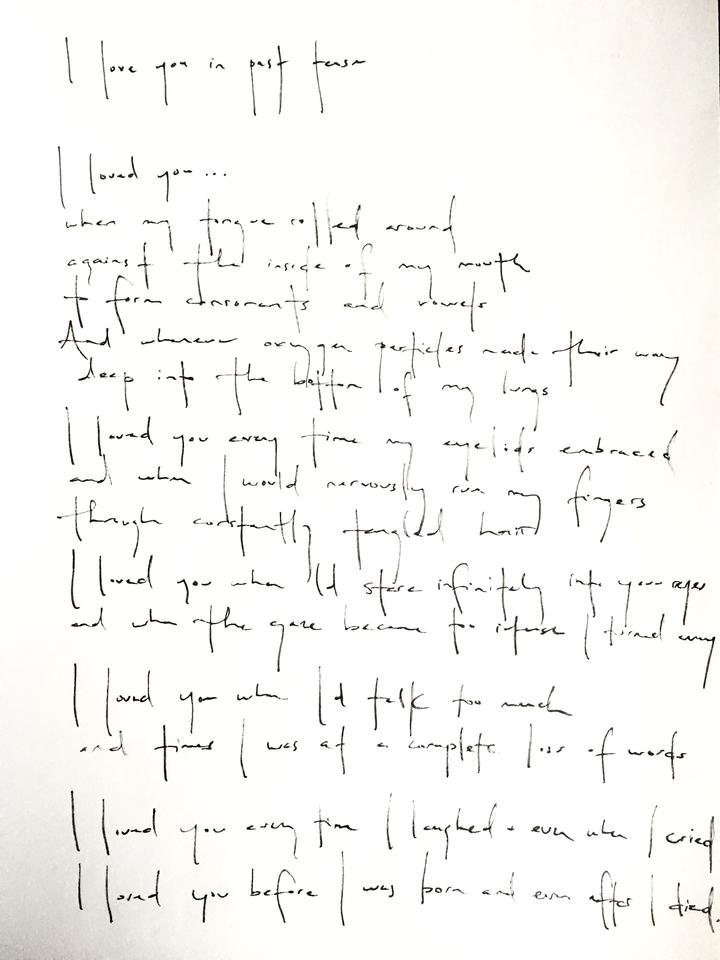 I love you in past tense
I loved you...
when my tongue rolled around
against the inside of my mouth
to form consonants and vowels
And whenever oxygen particles made their way
deep into the bottom of my lungs
I loved you every time my eyelids embraced
and when I would nervously run my fingers
through constantly tangled hair
I loved you when I'd stare infinitely into your eyes
and when the gaze became too intense I turned away
I loved you when I'd talk too much
and times I was at a complete loss of words
I loved you every time I laughed + even when I cried
I loved you before I was born and even after I died.